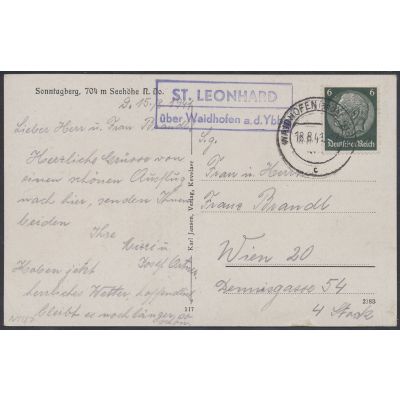 Sonntagberg, 704 m Seehöhe N. Do.
ST. LEONHARD
über Waidhofen a.d. Ybbs
WAIDHOFEN
18.8.41
c
6 6
Deutsches Reich
Lieber Herr u. Frau Brandl
Herrliche Grüsse von
einen schönen Ausflug
nach hier, senden Ihnen
beiden
Ihre
Mizzi u
Josef
Haben jetzt
herrliches Wetter, hoffentlich
bleibt es noch länger so
schön.
Karl Jansen, Verlag, Kevelaer
S.g.
Frau u. Herrn
Franz Brandl
Wien 20
Dennisgasse 54
4 Stock
117
2183